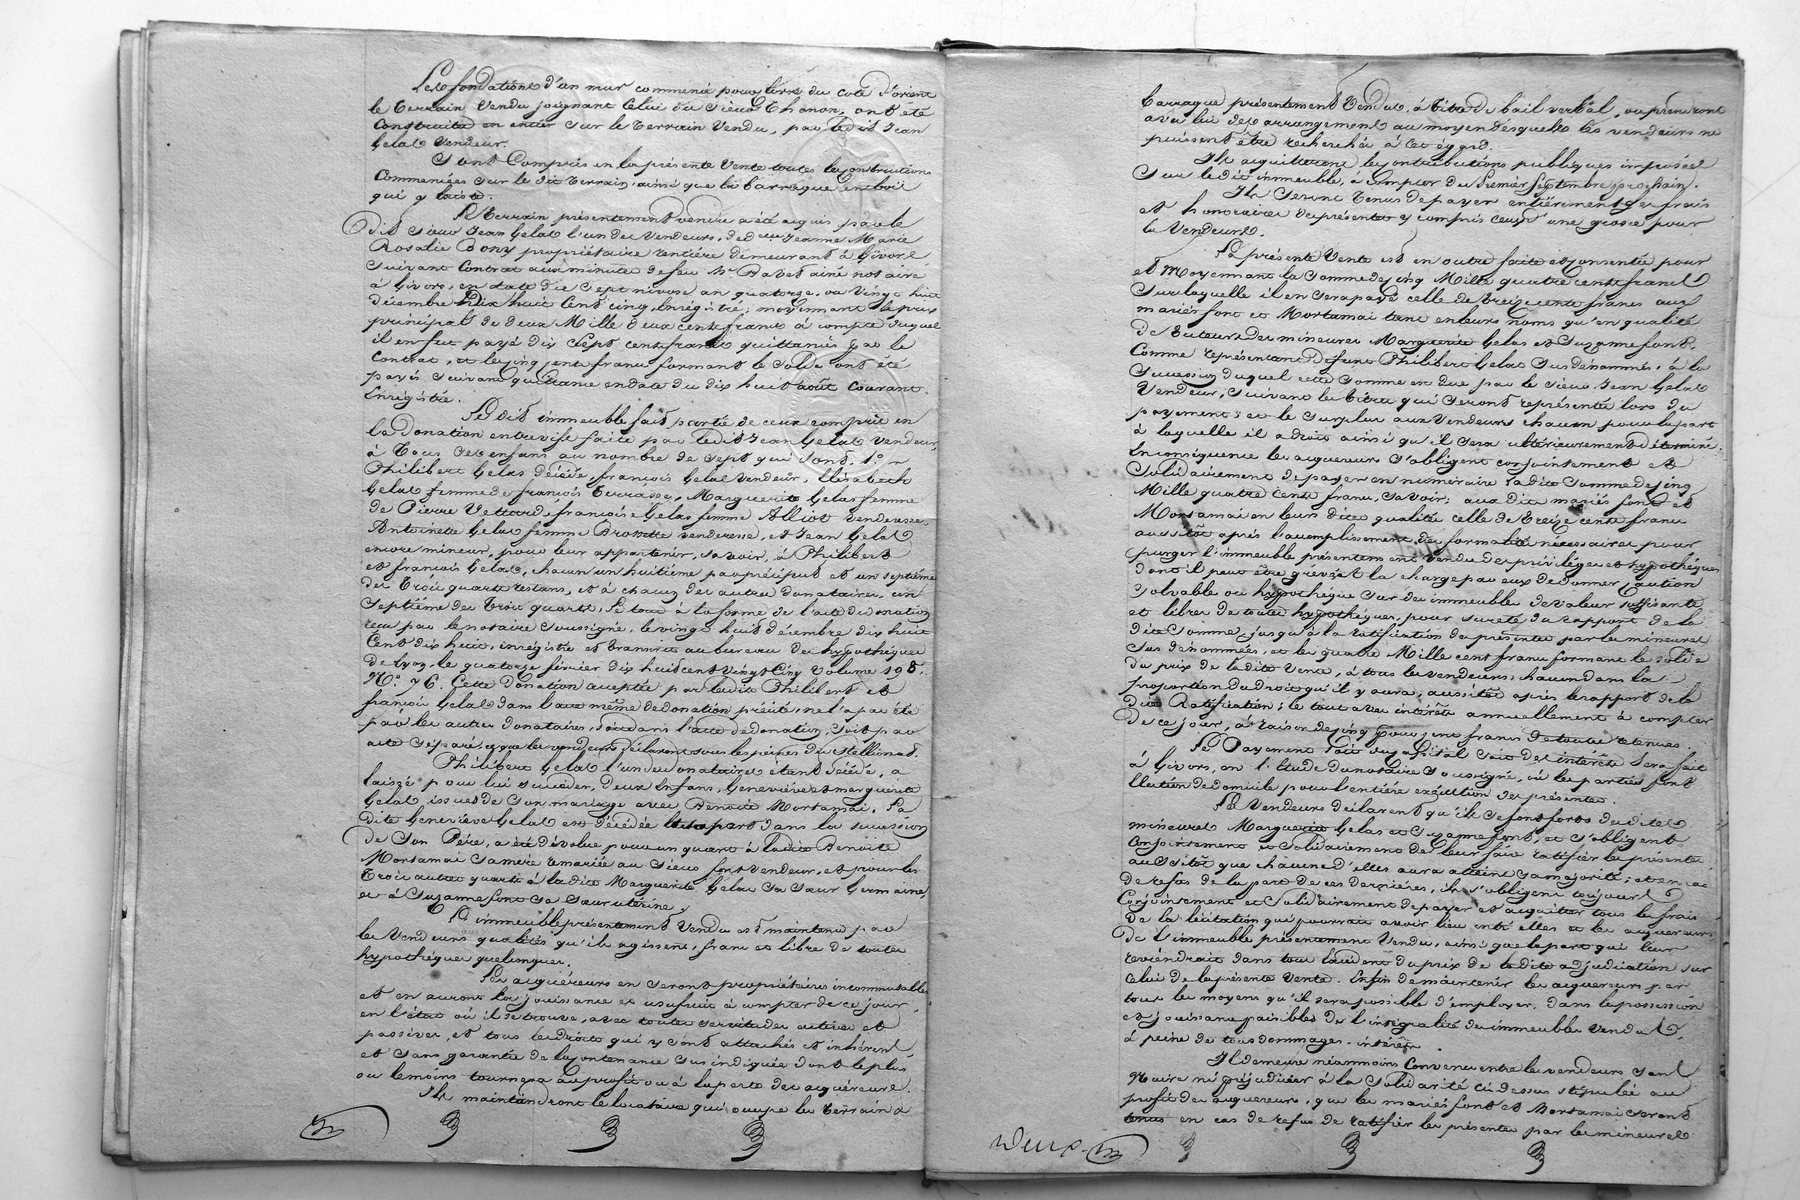 Les fondations d'un mur commencé pour lors du coté d'orient
le terrain vendu joignant celui du sieur Chanon, ont été
construites en entier sur le terrain vendu, par ledit Jean
Gelas vendeur.
Sont compris en la présente vente toutes les constructions
commencées sur le dit terrain, ainsi que la barraque en bois
qui y existe.
Le terrain présentement vendu a été acquis par le
dit sieur Jean Gelas l'un des vendeurs, de Jeanne Marie
Rosalie Bony propriétaire rentière demeurant à Givors
suivant contrat aux minutes de feu Me ainé notaire
à Givors, en date du sept nivose an quatorze, ou vingt huit
décembre dix huit cent cinq, enrégistré; moyennant le prix
principal de deux mille deux cents francs à compte duquel
il en fut payé dix sept cents francs quittancés par le
contrat, et les cinq cents francs formant le solde ont été
payés suivant quittance en date du dix huit août courant,
enrégistrée.
Le dit immeuble fait partie de ceux compris en
la donation entrevifs faite par ledit Jean Gelas vendeur,
à tous ses enfans au nombre de sept qui sont: 1°
Philibert Gelas décédé, françois Gelas vendeur, Elisabeth
Gelas femme de françois Terrasse, Marguerite Gelas femme
de Pierre Vettard, françoise Gelas femme Alliot venderesse,
Antoinette Gelas femme Brossette venderesse, et Jean Gelas
encore mineur, pour leur appartenir, savoir, à Philibert
et françois Gelas, chacun un huitième par préciput et un septième
des trois quarts restans, et à chacun des autres donataires un
septième des trois quarts, le tout à la forme de l'acte de donation
reçu par le notaire soussigné, le vingt huit décembre dix huit
cent dix huit, enrégistré et transcrit au bureau des hypothèques
de Lyon, le quatorze février dix huit cent vingt cinq volume 198.
N° 76. Cette donation acceptée par ledit Philibert et
françois Gelas dans l'acte même de donation précité, ne l'a pas été
par les autres donataires, soit dans l'acte de donation, soit par
acte séparé, ce que les vendeurs déclarent sous les peines du stellionat.
Philibert Gelas l'un des donataires étant décédé, a
laissé pour lui succéder, deux enfans, Geneviève et marguerite
Gelas, issues de son mariage avec Benoite Mortamai. La
dite Geneviève Gelas est décédée sa part dans la succession
de son Père, a été dévolue pour un quart à ladite Benoite
Mortamai sa mère remariée au sieur font vendeur, et pour les
trois autres quarts à ladite Marguerite Gelas sa sœur Germaine,
et à Suzanne font sa sœur utérine.
L'immeuble présentement vendu est maintenu par
les vendeurs qualités qu'ils agissent, franc et libre de toutes
hypothèques quelconques.
Les acquéreurs en seront propriétaires incommutables
et en auront la jouissance et usufruit à compter de ce jour,
en l'état où il se trouve, avec toutes servitudes actives et
passives, et tous les droits qui y sont attachés et inhérens
et sans garantie de la contenance sus indiquée dont le plus
ou le moins tournera au profit ou à la perte des acquéreurs.
Ils maintiendront le locataire qui occupe les terrain &
barraque présentement vendus, à titre de bail verbal, ou prendront
avec lui des arrangemens au moyen desquels les vendeurs ne
puissent être recherchés à cet égard.
Ils acquitteront les contributions publiques imposées
sur ledit immeuble, à compter du premier septembre prochain.
Ils seront tenus de payer entièrement les frais
et honoraires des présentes y compris ceux d'une grosse pour
les vendeurs.
La présente vente est en outre faite et consentie pour
et moyennant la somme de cinq Mille quatre cents francs
sur laquelle il en sera payé celle de treize cents francs aux
mariés font et Mortamai tant en leurs noms qu'en qualité
de tuteurs des mineures Marguerite Gelas et Suzanne font,
comme représentant défunt Philibert Gelas susdénommé, à la
succession duquel cette somme est due par le sieur Jean Gelas
vendeur, suivant les titres qui seront représentés lors du
payement; et le surplus aux vendeurs chacun pour la part
à laquelle il a droit ainsi qu'il sera ultérieurement déterminé.
En conséquence les acquéreurs s'obligent conjointement et
solidairement de payer en numéraire ladite somme de cinq
Mille quatre cents francs, savoir; aux dits mariés font et
Mortamai en leurs dites qualités celle de treize cents francs
aussitôt après l'accomplissement des formalités nécessaires pour
purger l'immeuble présentement vendu des privilèges et hypothèques
dont il peut être grévé, et la charge par eux de donner caution
solvable ou hypothèque sur des immeubles de valeur suffisante
et libres de toutes hypothèques, pour sureté du rapport de la
dite somme, jusqu'à la ratification des présentes par les mineures
sus dénommées, et les quatre Mille cent francs formant le solde
du prix de ladite vente, à tous les vendeurs chacun dans la
proportion du droit qu'il y aura, aussitôt après le rapport de la
dite Ratification; le tout avec intérêts annuellement à compter
de ce jour, à raison de cinq pour cent francs de toutes retenues.
Le Payement soit du capital soit des intérêts sera fait
à Givors, en l'Etude du notaire soussigné, où les parties font
élection de domicile pour l'entière exécution des présentes.
Les vendeurs déclarent qu'ils se font forts des dites
mineures Marguerite Gelas et Suzanne font, et s'obligent
conjointement et solidairement de leur faire ratifier les présentes
aussitôt que chacune d'elles aura atteint sa majorité; et en cas
de refus de la part de ces dernières, ils s'obligent toujours
conjointement et solidairement de payer et acquitter tous les frais
de la licitation qui pourrait avoir lieu entre elles et les acquéreurs
de l'immeuble présentement vendu, ainsi que la part qui leur
reviendrait dans tout l'excédent du prix de ladite adjudication sur
celui de la présente vente. Enfin de maintenir les acquéreurs par
tous les moyens qu'il sera possible d'employer, dans la possession
et jouissance paisibles de l'intégralité des immeubles vendus,
à peine de tous dommages-intérêts.
Il demeure néanmoins convenu entre les vendeurs sans
Nuire ni préjudicier à la solidarité ci-dessus stipulée au
profit des acquéreurs, que les mariés font et Mortamai seront
tenus en cas de refus de ratifier les présentes par les mineures
Deux